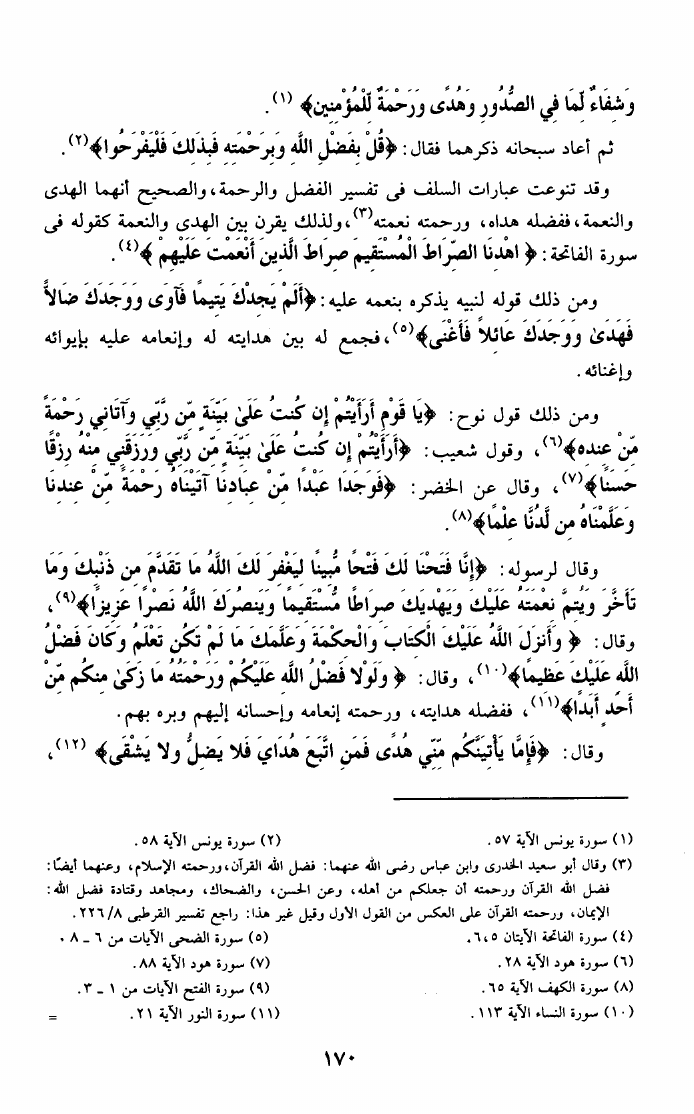 وَشِفَاءٌ لِّمَا فِي الصُّدُورِ وَهُدًى وَرَحْمَةٌ لِّلْمُؤْمِنِينَ﴾ (١).
ثم أعاد سبحانه ذكرهما فقال: ﴿قُلْ بِفَضْلِ اللَّهِ وَبِرَحْمَتِهِ فَبِذَلِكَ فَلْيَفْرَحُوا﴾(٢).
وقد تنوعت عبارات السلف فى تفسير الفضل والرحمة، والصحيح أنهما الهدى
والنعمة، ففضله هداه، ورحمته نعمته(٣)، ولذلك يقرن بين الهدى والنعمة كقوله فى
سورة الفاتحة: ﴿ اهْدِنَا الصِّرَاطَ الْمُسْتَقِيمَ صِرَاطَ الَّذِينَ أَنْعَمْتَ عَلَيْهِمْ ﴾(٤).
ومن ذلك قوله لنبيه يذكره بنعمه عليه: ﴿أَلَمْ يَجِدْكَ يَتِيمًا فَآوَى وَوَجَدَكَ ضَالاًّ
فَهَدَىٰ وَوَجَدَكَ عَائِلاً فَأَغْنَى﴾(٥)، فجمع له بين هدايته له وإنعامه عليه بإيوائه
وإغنائه.
ومن ذلك قول نوح: ﴿يَا قَوْمِ أَرَأَيْتُمْ إِن كُنتُ عَلَىٰ بَيِّنَةٍ مِّن رَّبِّي وَآتَانِي رَحْمَةً
مِّنْ عِندِهِ﴾(٦)، وقول شعيب: ﴿أَرَأَيْتُمْ إِن كُنتُ عَلَىٰ بَيِّنَةٍ مِّن رَّبِّي وَرَزَقَنِي مِنْهُ رِزْقًا
حَسَنًا﴾(٧)، وقال عن الخضر: ﴿فَوَجَدَا عَبْدًا مِّنْ عِبَادِنَا آتَيْنَاهُ رَحْمَةً مِّنْ عِندِنَا
وَعَلَّمْنَاهُ مِن لَّدُنَّا عِلْمًا﴾(٨).
وقال لرسوله: ﴿إِنَّا فَتَحْنَا لَكَ فَتْحًا مُّبِينًا لِيَغْفِرَ لَكَ اللَّهُ مَا تَقَدَّمَ مِن ذَنْبِكَ وَمَا
تَأَخَّرَ وَيُتِمَّ نِعْمَتَهُ عَلَيْكَ وَيَهْدِيَكَ صِرَاطًا مُّسْتَقِيمًا وَيَنصُرَكَ اللَّهُ نَصْرًا عَزِيزًا﴾(٩)،
وقال: ﴿ وَأَنزَلَ اللَّهُ عَلَيْكَ الْكِتَابَ وَالْحِكْمَةَ وَعَلَّمَكَ مَا لَمْ تَكُن تَعْلَمُ وَكَانَ فَضْلُ
اللَّهِ عَلَيْكَ عَظِيمًا﴾(١٠)، وقال: ﴿ وَلَوْلا فَضْلُ اللَّهِ عَلَيْكُمْ وَرَحْمَتُهُ مَا زَكَىٰ مِنكُم مِّنْ
أَحَدٍ أَبَدًا﴾(١١)، ففضله هدايته، ورحمته إنعامه وإحسانه إليهم وبره بهم.
وقال: ﴿فَإِمَّا يَأْتِيَنَّكُم مِّنِّي هُدًى فَمَنِ اتَّبَعَ هُدَايَ فَلا يَضِلُّ وَلا يَشْقَى﴾ (١٢)،
(١) سورة يونس الآية ٥٧. (٢) سورة يونس الآية ٥٨.
(٣) وقال أبو سعيد الخدرى وابن عباس رضى الله عنهما: فضل الله القرآن، ورحمته الإسلام، وعنهما أيضًا:
فضل الله القرآن ورحمته أن جعلكم من أهله، وعن الحسن، والضحاك، ومجاهد وقتادة فضل الله:
الإيمان، ورحمته القرآن على العكس من القول الأول وقيل غير هذا: راجع تفسير القرطبى ٨/ ٢٢٦.
(٤) سورة الفاتحة الآيتان ٥، ٦. (٥) سورة الضحى الآيات من ٦ - ٨.
(٦) سورة هود الآية ٢٨. (٧) سورة هود الآية ٨٨.
(٨) سورة الكهف الآية ٦٥. (٩) سورة الفتح الآيات من ١ - ٣.
(١٠) سورة النساء الآية ١١٣. (١١) سورة النور الآية ٢١. =
١٧٠